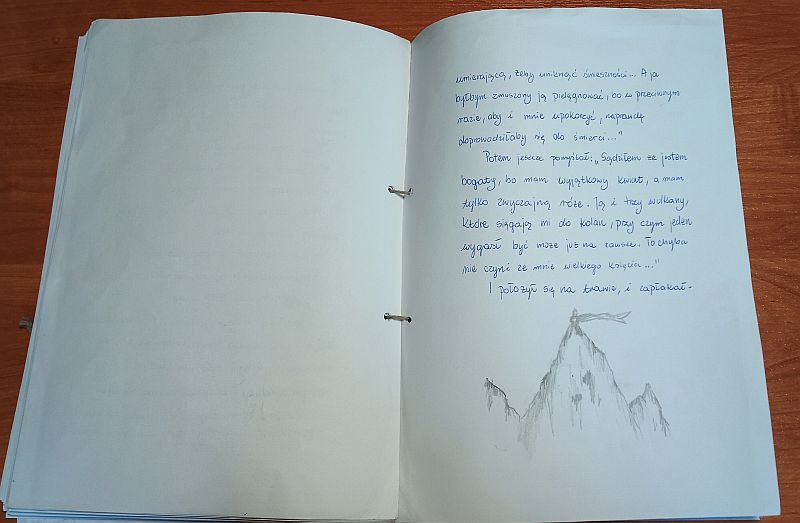 umierającą, żeby uniknąć śmieszności... A ja
byłbym zmuszony ją pielęgnować, bo w przeciwnym
razie, aby i mnie upokorzyć, naprawdę
doprowadziłaby się do śmierci..."
Potem jeszcze pomyślał: „Sądziłem że jestem
bogaty, bo mam wyjątkowy kwiat, a mam
tylko zwyczajną różę. Ją i trzy wulkany,
które sięgają mi do kolan, przy czym jeden
wygasł być może już na zawsze. To chyba
nie czyni ze mnie wielkiego księcia..."
I położył się na trawie, i zapłakał.